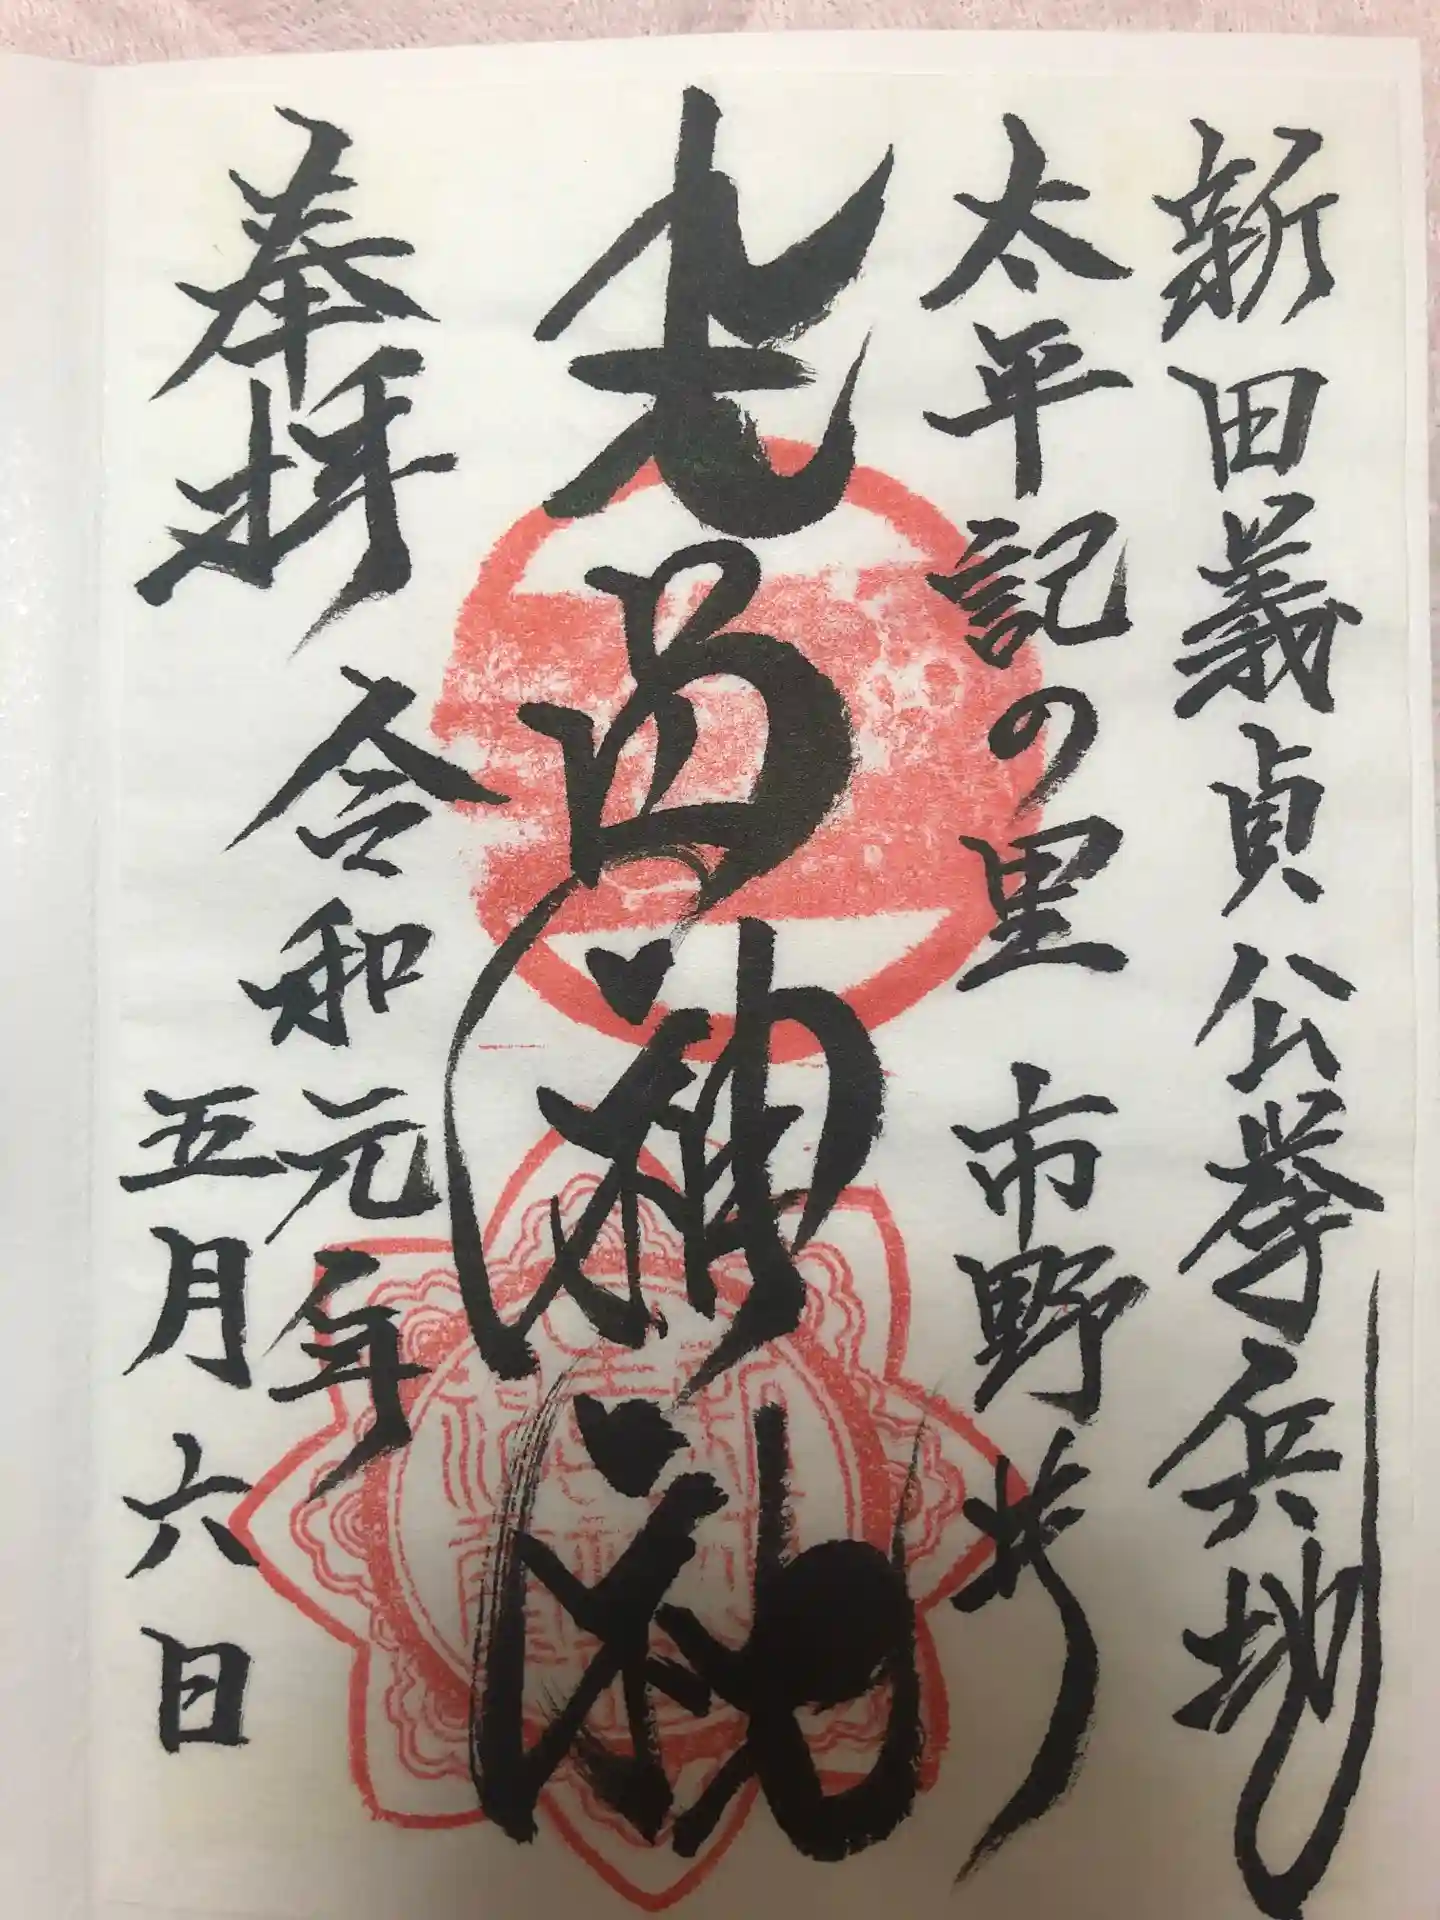 新田義貞公挙兵地
太平記の里　市野井
生品神社
奉拝　令和元年
五月六日